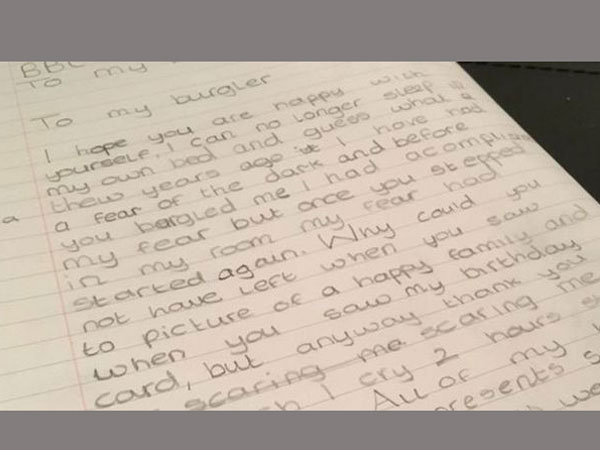 BBC
To my
To my burgler
I hope you are happy with
yourself. I can no longer sleep in
my own bed and guess what a
thew years ago I have had
a fear of the dark and before
a
you bergled me I had
my fear but once you stepped
in my room my fear had
started again. Why could you
not have left when you saw
to picture of a happy family and
when you saw my birthday
card, but anyway thank you
scaring me scaring me
I cry 2 hours
All of my
presents